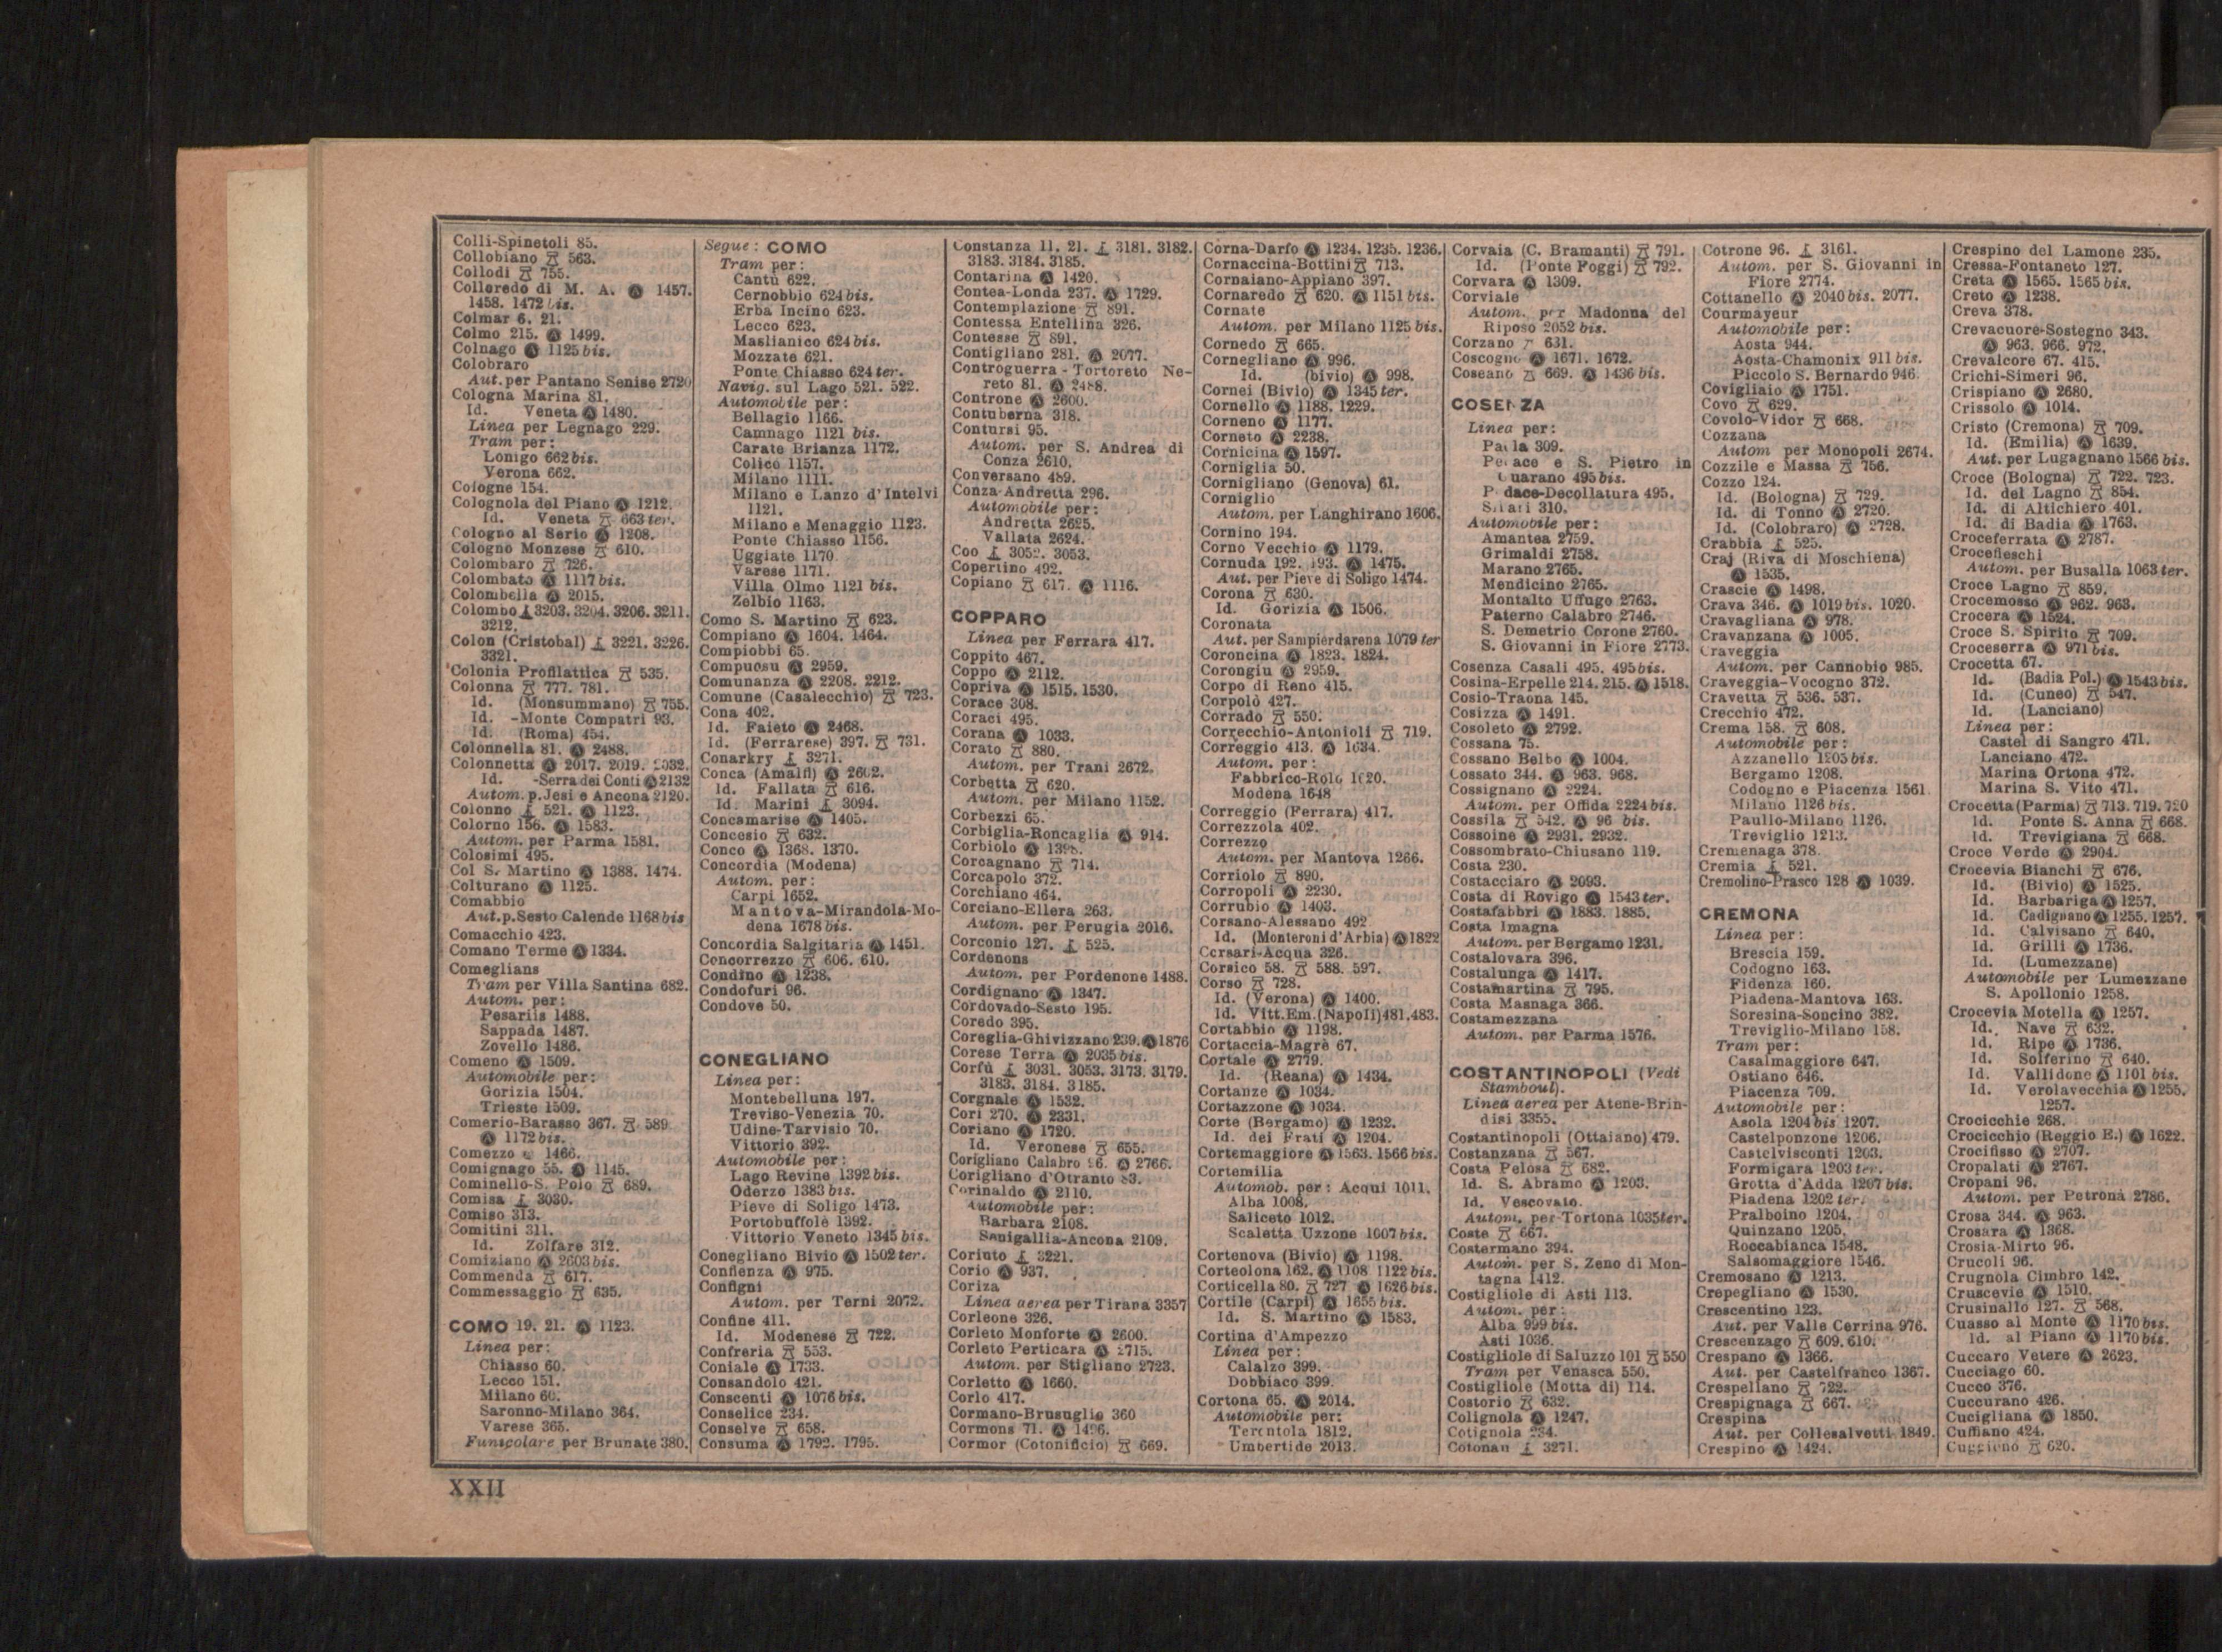 Colli-Spinetoli 85.
Collobiano 563.
Collodi 755.
Colloredo di M. A. Ⓐ 1457.
1458. 1472 bis.
Colmar 6. 21.
Colmo 215. Ⓐ 1499.
Colnago Ⓐ 1125 bis.
Colobraro
Aut. per Pantano Senise 2720
Cologna Marina 81.
Id. Veneta Ⓐ 1480.
Linea per Legnago 229.
Tram per:
Lonigo 662 bis.
Verona 662.
Cologne 154.
Colognola del Piano Ⓐ 1212.
Id. Veneta 663 ter.
Cologno al Serio Ⓐ 1208.
Cologno Monzese 610.
Colombaro 726.
Colombato Ⓐ 1117 bis.
Colombella Ⓐ 2015.
Colombo 3203. 3204. 3206. 3211.
3212.
Colon (Cristobal) 3221. 3226.
3321.
Colonia Profilattica 535.
Colonna 777. 781.
Id. (Monsummano) 755.
Id. -Monte Compatri 93.
Id. (Roma) 454.
Colonnella 81. Ⓐ 2488.
Colonnetta Ⓐ 2017. 2019. 2032.
Id. -Serra dei Conti Ⓐ 2132
Autom. p. Jesi e Ancona 2120.
Colonno 521. Ⓐ 1123.
Colorno 156. Ⓐ 1583.
Autom. per Parma 1581.
Colosimi 495.
Col S. Martino Ⓐ 1388. 1474.
Colturano Ⓐ 1125.
Comabbio
Aut. p. Sesto Calende 1168 bis
Comacchio 423.
Comano Terme Ⓐ 1334.
Comeglians
Tram per Villa Santina 682.
Autom. per:
Pesariis 1488.
Sappada 1487.
Zovello 1486.
Comeno Ⓐ 1509.
Automobile per:
Gorizia 1504.
Trieste 1509.
Comerio-Barasso 367. 589
Ⓐ 1172 bis.
Comezzo 1466.
Comignago 55. Ⓐ 1145.
Cominello-S. Polo 689.
Comisa 3030.
Comiso 313.
Comitini 311.
Id. Zolfare 312.
Comiziano Ⓐ 2603 bis.
Commenda 617.
Commessaggio 635.
COMO 19. 21. Ⓐ 1123.
Linea per:
Chiasso 60.
Lecco 151.
Milano 60.
Saronno-Milano 364.
Varese 365.
Funicolare per Brunate 380.
Segue: COMO
Tram per:
Cantù 622.
Cernobbio 624 bis.
Erba Incino 623.
Lecco 623.
Maslianico 624 bis.
Mozzate 621.
Ponte Chiasso 624 ter.
Navig. sul Lago 521. 522.
Automobile per:
Bellagio 1166.
Camnago 1121 bis.
Carate Brianza 1172.
Colico 1157.
Milano 1111.
Milano e Lanzo d'Intelvi
1121.
Milano e Menaggio 1123.
Ponte Chiasso 1156.
Uggiate 1170
Varese 1171.
Villa Olmo 1121 bis.
Zelbio 1163.
Como S. Martino 623.
Compiano Ⓐ 1604. 1464.
Compiobbi 65.
Compuosu Ⓐ 2959.
Comunanza Ⓐ 2208. 2212.
Comune (Casalecchio) 723.
Cona 402.
Id. Faieto Ⓐ 2468.
Id. (Ferrarese) 397. 731.
Conarkry 3271.
Conca (Amalfi) Ⓐ 2602.
Id. Fallata 616.
Id. Marini 3094.
Concamarise Ⓐ 1405.
Concesio 632.
Conco Ⓐ 1368. 1370.
Concordia (Modena)
Autom. per:
Carpi 1652.
Mantova-Mirandola-Mo-
dena 1678 bis.
Concordia Salgitaria Ⓐ 1451.
Concorrezzo 606. 610.
Condino Ⓐ 1238.
Condofuri 96.
Condove 50.
CONEGLIANO
Linea per:
Montebelluna 197.
Treviso-Venezia 70.
Udine-Tarvisio 70.
Vittorio 392.
Automobile per:
Lago Revine 1392 bis.
Oderzo 1383 bis.
Pieve di Soligo 1473.
Portobuffolè 1392.
Vittorio Veneto 1345 bis.
Conegliano Bivio Ⓐ 1502 ter.
Confienza Ⓐ 975.
Configni
Autom. per Terni 2072.
Confine 411.
Id. Modenese 722.
Confreria 553.
Coniale Ⓐ 1733.
Consandolo 421.
Conscenti Ⓐ 1076 bis.
Conselice 234.
Conselve 658.
Consuma Ⓐ 1792. 1795.
Constanza 11. 21. 3181. 3182.
3183. 3184. 3185.
Contarina Ⓐ 1420.
Contea-Londa 237. Ⓐ 1729.
Contemplazione 891.
Contessa Entellina 326.
Contesse 891.
Contigliano 281. Ⓐ 2077.
Controguerra - Tortoreto Ne-
reto 81. Ⓐ 2488.
Controne Ⓐ 2600.
Contuberna 318.
Contursi 95.
Autom. per S. Andrea di
Conza 2610.
Conversano 489.
Conza-Andretta 296.
Automobile per:
Andretta 2625.
Vallata 2624.
Coo 3052. 3053.
Copertino 492.
Copiano 617. Ⓐ 1116.
COPPARO
Linea per Ferrara 417.
Coppito 467.
Coppo Ⓐ 2112.
Copriva Ⓐ 1515. 1530.
Corace 308.
Coraci 495.
Corana Ⓐ 1033.
Corato 880.
Autom. per Trani 2672.
Corbetta 620.
Autom. per Milano 1152.
Corbezzi 65.
Corbiglia-Roncaglia Ⓐ 914.
Corbiolo Ⓐ 1398.
Corcagnano 714.
Corcapolo 372.
Corchiano 464.
Corciano-Ellera 263.
Autom. per Perugia 2016.
Corconio 127. 525.
Cordenons
Autom. per Pordenone 1488.
Cordignano Ⓐ 1347.
Cordovado-Sesto 195.
Coredo 395.
Coreglia-Ghivizzano 239. Ⓐ 1876
Corese Terra Ⓐ 2035 bis.
Corfù 3031. 3053. 3173. 3179.
3183. 3184. 3185.
Corgnale Ⓐ 1532.
Cori 270. Ⓐ 2331.
Coriano Ⓐ 1720.
Id. Veronese 655.
Corigliano Calabro 96. Ⓐ 2766.
Corigliano d'Otranto 83.
Corinaldo Ⓐ 2110.
Automobile per:
Barbara 2108.
Senigallia-Ancona 2109.
Corinto 3221.
Corio Ⓐ 937.
Coriza
Linea aerea per Tirana 3357
Corleone 326.
Corleto Monforte Ⓐ 2600.
Corleto Perticara Ⓐ 2715.
Autom. per Stigliano 2723.
Corletto Ⓐ 1660.
Corlo 417.
Cormano-Brusuglio 360
Cormons 71. Ⓐ 1496.
Cormor (Cotonificio) 669.
Corna-Darfo Ⓐ 1234. 1235. 1236.
Cornaccina-Bottini 713.
Cornaiano-Appiano 397.
Cornaredo 620. Ⓐ 1151 bis.
Cornate
Autom. per Milano 1125 bis.
Cornedo 665.
Cornegliano Ⓐ 996.
Id. (bivio) Ⓐ 998.
Cornei (Bivio) Ⓐ 1345 ter.
Cornello Ⓐ 1188. 1229.
Corneno Ⓐ 1177.
Corneto Ⓐ 2238.
Cornicina Ⓐ 1597.
Corniglia 50.
Cornigliano (Genova) 61.
Corniglio
Autom. per Langhirano 1606.
Cornino 194.
Corno Vecchio Ⓐ 1179.
Cornuda 192. 193. Ⓐ 1475.
Aut. per Pieve di Soligo 1474.
Corona 630.
Id. Gorizia Ⓐ 1506.
Coronata
Aut. per Sampierdarena 1079 ter
Coroncina Ⓐ 1823. 1824.
Corongiu Ⓐ 2959.
Corpo di Reno 415.
Corpolò 427.
Corrado 550.
Correcchio-Antonioli 719.
Correggio 413. Ⓐ 1634.
Autom. per:
Fabbrico-Rolo 1620.
Modena 1648
Correggio (Ferrara) 417.
Correzzola 402.
Correzzo
Autom. per Mantova 1266.
Corriolo 890.
Corropoli Ⓐ 2230.
Corrubio Ⓐ 1403.
Corsano-Alessano 492
Id. (Monteroni d'Arbia) Ⓐ 1822
Corsari-Acqua 326.
Corsico 58. 588. 597.
Corso 728.
Id. (Verona) Ⓐ 1400.
Id. Vitt. Em. (Napoli) 481. 483.
Cortabbio Ⓐ 1198.
Cortaccia-Magrè 67.
Cortale Ⓐ 2779.
Id. (Reana) Ⓐ 1434.
Cortanze Ⓐ 1034.
Cortazzone Ⓐ 1034.
Corte (Bergamo) Ⓐ 1232.
Id. dei Frati Ⓐ 1204.
Cortemaggiore Ⓐ 1563. 1566 bis.
Cortemilia
Automob. per: Acqui 1011.
Alba 1008.
Saliceto 1012.
Scaletta Uzzone 1007 bis.
Cortenova (Bivio) Ⓐ 1198.
Corteolona 162. Ⓐ 1108 1122 bis.
Corticella 80. 727 Ⓐ 1626 bis.
Cortile (Carpi) Ⓐ 1655 bis.
Id. S. Martino Ⓐ 1583.
Cortina d'Ampezzo
Linea per:
Calalzo 399.
Dobbiaco 399.
Cortona 65. Ⓐ 2014.
Automobile per:
Terontola 1812.
Umbertide 2013.
Corvaia (C. Bramanti) 791.
Id. (Ponte Foggi) 792.
Corvara Ⓐ 1309.
Corviale
Autom. per Madonna del
Riposo 2052 bis.
Corzano 631.
Coscogno Ⓐ 1671. 1672.
Coseano 669. Ⓐ 1436 bis.
COSENZA
Linea per:
Paola 309.
Pedace e S. Pietro in
Guarano 495 bis.
Pedace-Decollatura 495.
Sibari 310.
Automobile per:
Amantea 2759.
Grimaldi 2758.
Marano 2765.
Mendicino 2765.
Montalto Uffugo 2763.
Paterno Calabro 2746.
S. Demetrio Corone 2760.
S. Giovanni in Fiore 2773.
Cosenza Casali 495. 495 bis.
Cosina-Erpelle 214. 215. Ⓐ 1518.
Cosio-Traona 145.
Cosizza Ⓐ 1491.
Cosoleto Ⓐ 2792.
Cossana 75.
Cossano Belbo Ⓐ 1004.
Cossato 344. Ⓐ 963. 968.
Cossignano Ⓐ 2224.
Autom. per Offida 2224 bis.
Cossila 542. Ⓐ 96 bis.
Cossoine Ⓐ 2931. 2932.
Cossombrato-Chiusano 119.
Costa 230.
Costacciaro Ⓐ 2093.
Costa di Rovigo Ⓐ 1543 ter.
Costafabbri Ⓐ 1883. 1885.
Costa Imagna
Autom. per Bergamo 1231.
Costalovara 396.
Costalunga Ⓐ 1417.
Costamartina 795.
Costa Masnaga 366.
Costamezzana
Autom. per Parma 1576.
COSTANTINOPOLI (Vedi
Stamboul).
Linea aerea per Atene-Brin-
disi 3355.
Costantinopoli (Ottaiano) 479.
Costanzana 567.
Costa Pelosa 682.
Id. S. Abramo Ⓐ 1203.
Id. Vescovato.
Autom. per Tortona 1035 ter.
Coste 667.
Costermano 394.
Autom. per S. Zeno di Mon-
tagna 1412.
Costigliole di Asti 113.
Autom. per:
Alba 999 bis.
Asti 1036.
Costigliole di Saluzzo 101 550
Tram per Venasca 550.
Costigliole (Motta di) 114.
Costorio 632.
Cotignola Ⓐ 1247.
Cotignola 234.
Cotonau 3271.
Cotrone 96. 3161.
Autom. per S. Giovanni in
Fiore 2774.
Cottanello Ⓐ 2040 bis. 2077.
Courmayeur
Automobile per:
Aosta 944.
Aosta-Chamonix 911 bis.
Piccolo S. Bernardo 946.
Covigliaio Ⓐ 1751.
Covo 629.
Covolo-Vidor 668.
Cozzana
Autom per Monopoli 2674.
Cozzile e Massa 756.
Cozzo 124.
Id. (Bologna) 729.
Id. di Tonno Ⓐ 2720.
Id. (Colobraro) Ⓐ 2728.
Crabbia 525.
Craj (Riva di Moschiena)
Ⓐ 1535.
Crascie Ⓐ 1498.
Crava 346. Ⓐ 1019 bis. 1020.
Cravagliana Ⓐ 978.
Cravanzana Ⓐ 1005.
Craveggia
Autom. per Cannobio 985.
Craveggia-Vocogno 372.
Cravetta 536. 537.
Crecchio 472.
Crema 158. 608.
Automobile per:
Azzanello 1205 bis.
Bergamo 1208.
Codogno e Piacenza 1561
Milano 1126 bis.
Paullo-Milano 1126.
Treviglio 1213.
Cremenaga 378.
Cremia 521.
Cremolino-Prasco 128 Ⓐ 1039.
CREMONA
Linea per:
Brescia 159.
Codogno 163.
Fidenza 160.
Piadena-Mantova 163.
Soresina-Soncino 382.
Treviglio-Milano 158.
Tram per:
Casalmaggiore 647.
Ostiano 646.
Piacenza 709.
Automobile per:
Asola 1204 bis 1207.
Castelponzone 1206.
Castelvisconti 1203.
Formigara 1203 ter.
Grotta d'Adda 1207 bis.
Piadena 1202 ter.
Pralboino 1204.
Quinzano 1205.
Roccabianca 1548.
Salsomaggiore 1546.
Cremosano Ⓐ 1213.
Crepegliano Ⓐ 1530.
Crescentino 123.
Aut. per Valle Cerrina 976.
Crescenzago 609. 610.
Crespano Ⓐ 1366.
Aut. per Castelfranco 1367.
Crespellano 722.
Crespignaga 667.
Crespina
Aut. per Collesalvetti 1849.
Crespino Ⓐ 1424.
Crespino del Lamone 235.
Cressa-Fontaneto 127.
Creta Ⓐ 1565. 1565 bis.
Creto Ⓐ 1238.
Creva 378.
Crevacuore-Sostegno 343.
Ⓐ 963. 966. 972.
Crevalcore 67. 415.
Crichi-Simeri 96.
Crispiano Ⓐ 2680.
Crissolo Ⓐ 1014.
Cristo (Cremona) 709.
Id. (Emilia) Ⓐ 1639.
Aut. per Lugagnano 1566 bis.
Croce (Bologna) 722. 723.
Id. del Lagno 854.
Id. di Altichiero 401.
Id. di Badia Ⓐ 1763.
Croceferrata Ⓐ 2787.
Crocefieschi
Autom. per Busalla 1063 ter.
Croce Lagno 859.
Crocemosso Ⓐ 962. 963.
Crocera Ⓐ 1524.
Croce S. Spirito 709.
Croceserra Ⓐ 971 bis.
Crocetta 67.
Id. (Badia Pol.) Ⓐ 1543 bis.
Id. (Cuneo) 547.
Id. (Lanciano)
Linea per:
Castel di Sangro 471.
Lanciano 472.
Marina Ortona 472.
Marina S. Vito 471.
Crocetta (Parma) 713. 719. 720
Id. Ponte S. Anna 668.
Id. Trevigiana 668.
Croce Verde Ⓐ 2904.
Crocevia Bianchi 676.
Id. (Bivio) Ⓐ 1525.
Id. Barbariga Ⓐ 1257.
Id. Cadignano Ⓐ 1255. 1257.
Id. Calvisano 640.
Id. Grilli Ⓐ 1736.
Id. (Lumezzane)
Automobile per Lumezzane
S. Apollonio 1258.
Crocevia Motella Ⓐ 1257.
Id. Nave 632.
Id. Ripe Ⓐ 1736.
Id. Solferino 640.
Id. Vallidone Ⓐ 1101 bis.
Id. Verolavecchia Ⓐ 1255.
1257.
Crocicchie 268.
Crocicchio (Reggio E.) Ⓐ 1622.
Crocifisso Ⓐ 2707.
Cropalati Ⓐ 2767.
Cropani 96.
Autom. per Petronà 2786.
Crosa 344. Ⓐ 963.
Crosara Ⓐ 1368.
Crosia-Mirto 96.
Crucoli 96.
Crugnola Cimbro 142.
Cruscevie Ⓐ 1510.
Crusinallo 127. 568.
Cuasso al Monte Ⓐ 1170 bis.
Id. al Piano Ⓐ 1170 bis.
Cuccaro Vetere Ⓐ 2623.
Cucciago 60.
Cucco 376.
Cuccurano 426.
Cucigliana Ⓐ 1850.
Cuffiano 424.
Cuggiono 620.
XXII